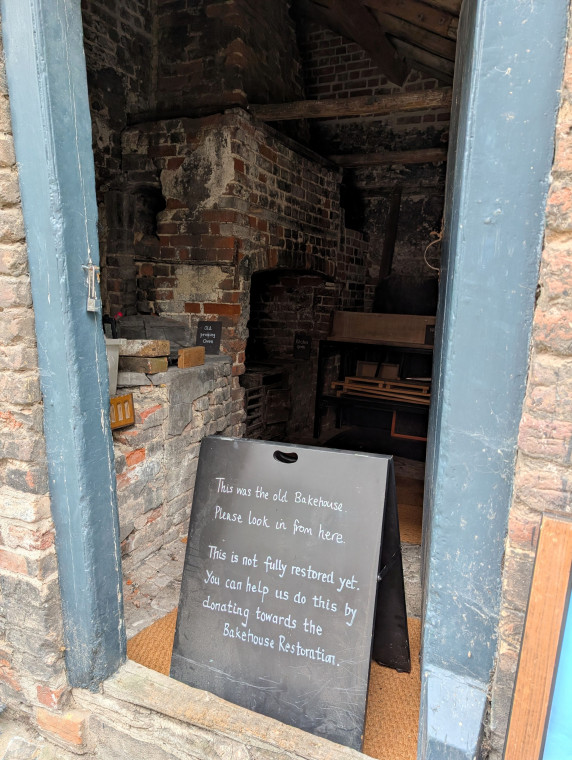 Old
proving
oven
This was the old Bakehouse.
Please look in from here.
This is not fully restored yet.
You can help us do this by
donating towards the
Bakehouse Restoration.